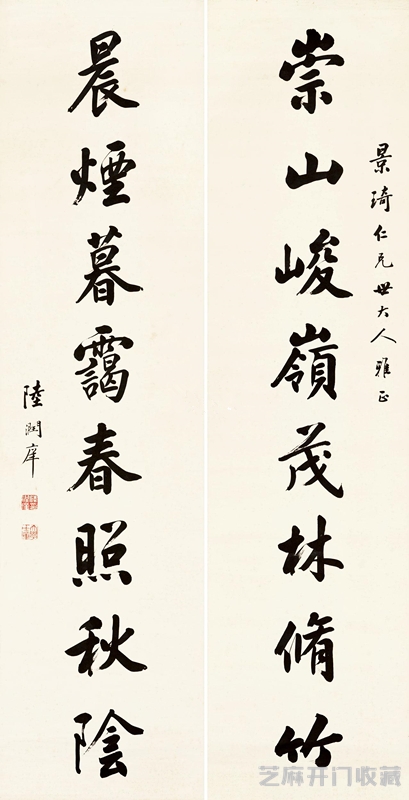 景琦仁兄世大人雅正
崇山峻嶺茂林脩竹
晨煙暮靄春照秋陰
陸潤庠
芝麻开门收藏